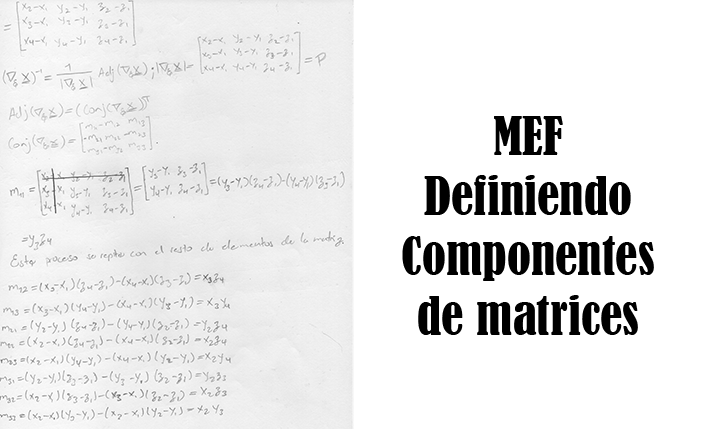 = [x₂-x₁ y₂-y₁ z₂-z₁
x₃-x₁ y₃-y₁ z₂-z₁
x₄-x₁ y₄-y₁ z₄-z₁]
(∇ξX)⁻¹ = 1/|∇ξX| Adj(∇ξX); |∇ξX| = [x₂-x₁ y₂-y₁ z₂-z₁
x₃-x₁ y₃-y₁ z₃-z₁
x₄-x₁ y₄-y₁ z₄-z₁] = P
Adj(∇ξX) = (Conj(∇ξX))ᵀ
Conj(∇ξX) =
m₁₁ = = [y₃-y₁ z₃-z₁
y₄-y₁ z₄-z₁] = (y₃-y₁)(z₄-z₁)-(y₄-y₁)(z₃-z₁)
= y₃z₄
Este proceso se repite con el resto de elementos de la matriz.
m₁₂ = (x₃-x₁)(z₄-z₁)-(x₄-x₁)(z₃-z₁) = x₃z₄
m₁₃ = (x₃-x₁)(y₄-y₁)-(x₄-x₁)(y₃-y₁) = x₃y₄
m₂₁ = (y₂-y₁)(z₄-z₁)-(y₄-y₁)(z₂-z₁) = y₂z₄
m₂₂ = (x₂-x₁)(z₄-z₁)-(x₄-x₁)(z₂-z₁) = x₂z₄
m₂₃ = (x₂-x₁)(y₄-y₁)-(x₄-x₁)(y₂-y₁) = x₂y₄
m₃₁ = (y₂-y₁)(z₃-z₁)-(y₃-y₁)(z₂-z₁) = y₂z₃
m₃₂ = (x₂-x₁)(z₃-z₁)-(x₃-x₁)(z₂-z₁) = x₂z₃
m₃₃ = (x₂-x₁)(y₃-y₁)-(x₃-x₁)(y₂-y₁) = x₂y₃
MEF
Definiendo
Componentes
de matrices